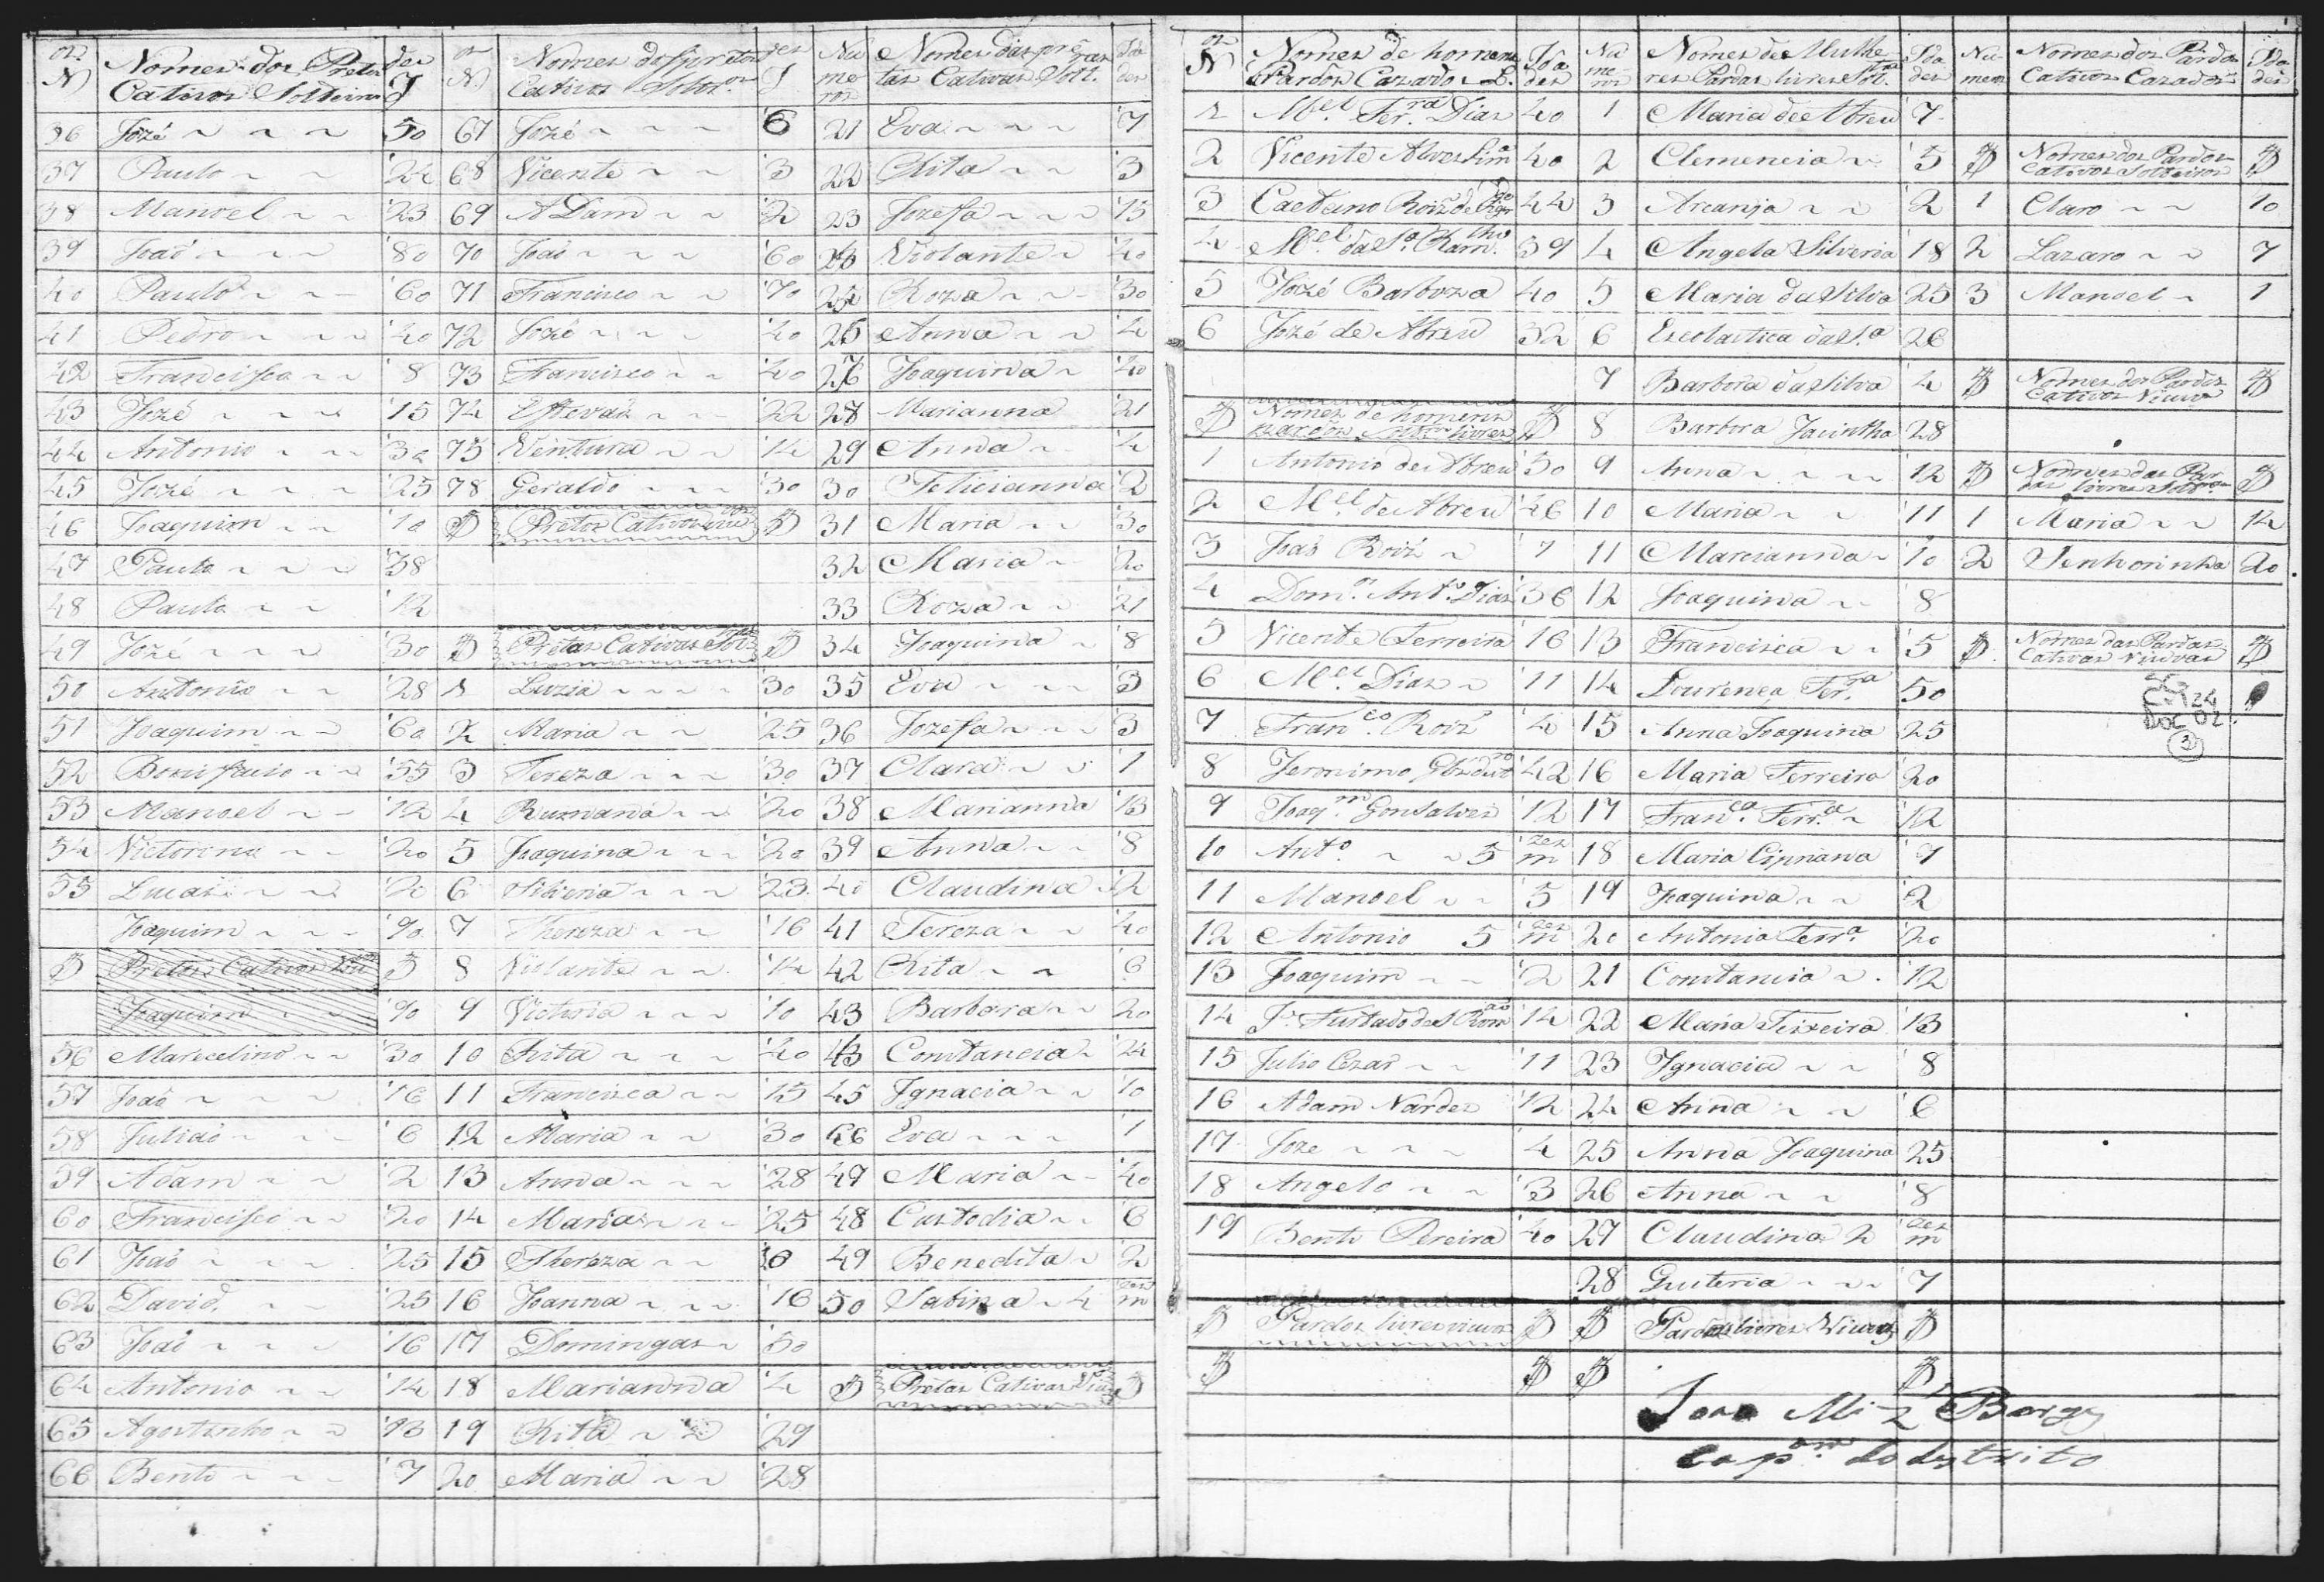 Nos Nomes dos Pretos des Nos Nomes dos pretos des Nu Nomes das pre Ida
Cativos Solteiros I Cativos Soltos I meros tas Cativas Solt.ras des
36 Jozé 50 67 Jozé 6 21 Eva 7
37 Paulo 24 68 Vicente 3 22 Rita 3
38 Manoel 23 69 ADam 2 23 Jozefa 15
39 João 80 70 João 60 24 Violante 40
40 Paulo 60 71 Francisco 70 25 Roza 30
41 Pedro 40 72 Jozé 40 26 Anna 4
42 Francisco 8 73 Francisco 40 27 Joaquina 40
43 Jozé 15 74 Estevaõ 22 28 Marianna 21
44 Antonio 30 75 Ventura 14 29 Anna 4
45 Jozé 25 78 Geraldo 30 30 Felicianna 2
46 Joaquim 10 Pretos Cativos viuos 31 Maria 30
47 Paulo 38 32 Maria 20
48 Paulo 12 33 Roza 21
49 Jozé 30 Pretas Cativas Solt.ras 34 Joaquina 8
50 Antonio 28 1 Luzia 30 35 Eva 3
51 Joaquim 60 2 Maria 25 36 Jozefa 3
52 Bonifacio 55 3 Tereza 30 37 Clara 1
53 Manoel 12 4 Rumana 20 38 Marianna 13
54 Victorino 20 5 Joaquina 20 39 Anna 8
55 Lucas 20 6 Silveria 23 40 Claudina 2
Joaquim 90 7 Thereza 16 41 Tereza 40
Pretos Cativos 8 Violante 14 42 Rita 6
Joaquim 90 9 Victoria 10 43 Barbara 20
56 Marcelino 30 10 Rita 40 43 Constancia 24
57 João 16 11 Francisca 15 45 Ignacia 10
58 Julião 6 12 Maria 30 46 Eva 1
59 Adam 2 13 Anna 28 47 Maria 40
60 Francisco 20 14 Maria 25 48 Custodia 6
61 João 25 15 Thereza 49 Benedita 2
62 David 25 16 Joanna 16 50 Sabina 4 mezes
63 João 16 17 Domingas 50
64 Antonio 14 18 Marianna 4 Pretas Cativas Viuas
65 Agostinho 13 19 Rita 29
66 Bento 7 20 Maria 28
Nos Nomes de homens Ida Nu Nomes de Mulhe Ida Nu Nomes dos Pardos Ida
Pardos Cazados L. des meros res Pardas livres Solt.as des meros Cativos Cazados des
1 M.el Fer.ra Dias 40 1 Maria de Abreu 7
2 Vicente Alves Lima 40 2 Clemencia 5 Nomes dos Pardos
Cativos Solteiros
3 Caetano Roiz de 44 3 Arcanja 2 1 Claro 10
4 M.el da S.a Ram.lho 39 4 Angela Silveria 18 2 Lazaro 7
5 Jozé Barboza 40 5 Maria da Silva 25 3 Manoel 1
6 Jozé de Abreu 32 6 Escolastica da S.a 26
7 Barbora da Silva 4 Nomes dos Pardos
Cativos Viuvos
Nomes de homens
pardos solt.ros livres 8 Barbora Jacintha 28
1 Antonio de Abreu 50 9 Anna 12 Nomes das Par
das livres Solt.ras
2 M.el de Abreu 46 10 Maria 11 1 Maria 14
3 João Roiz 7 11 Marcianna 10 2 Senhorinha 20
4 Dom.os Ant.o Dias 36 12 Joaquina 8
5 Vicente Ferreira 16 13 Francisca 5 Nomes das Pardas
Cativas Viuvas
6 M.el Dias 11 14 Lourença Fer.ra 50
7 Fran.co Roiz 4 15 Anna Joaquina 25
24
DOC 02
3
8 Jernimo 42 16 Maria Ferreira 20
9 Joaq.m Gonsalves 12 17 Fran.ca Ferr.a 12
10 Ant.o 5 mezes 18 Maria Cipriana 7
11 Manoel 5 19 Joaquina 2
12 Antonio 5 mezes 20 Antonia Ferr.a 20
13 Joaquim 2 21 Constancia 12
14 J.e Furtado de 14 22 Maria Teixeira 13
15 Julio Cezar 11 23 Ignacia 8
16 Adam Nardes 12 24 Anna 6
17 Joze 4 25 Anna Joaquina 25
18 Angelo 3 26 Anna 8
19 Bento Pereira 40 27 Claudina 2 mezes
28 Quiteria 7
Pardos livres viuvos Pardas livres Viuvas
Borges
cap.am do destrito